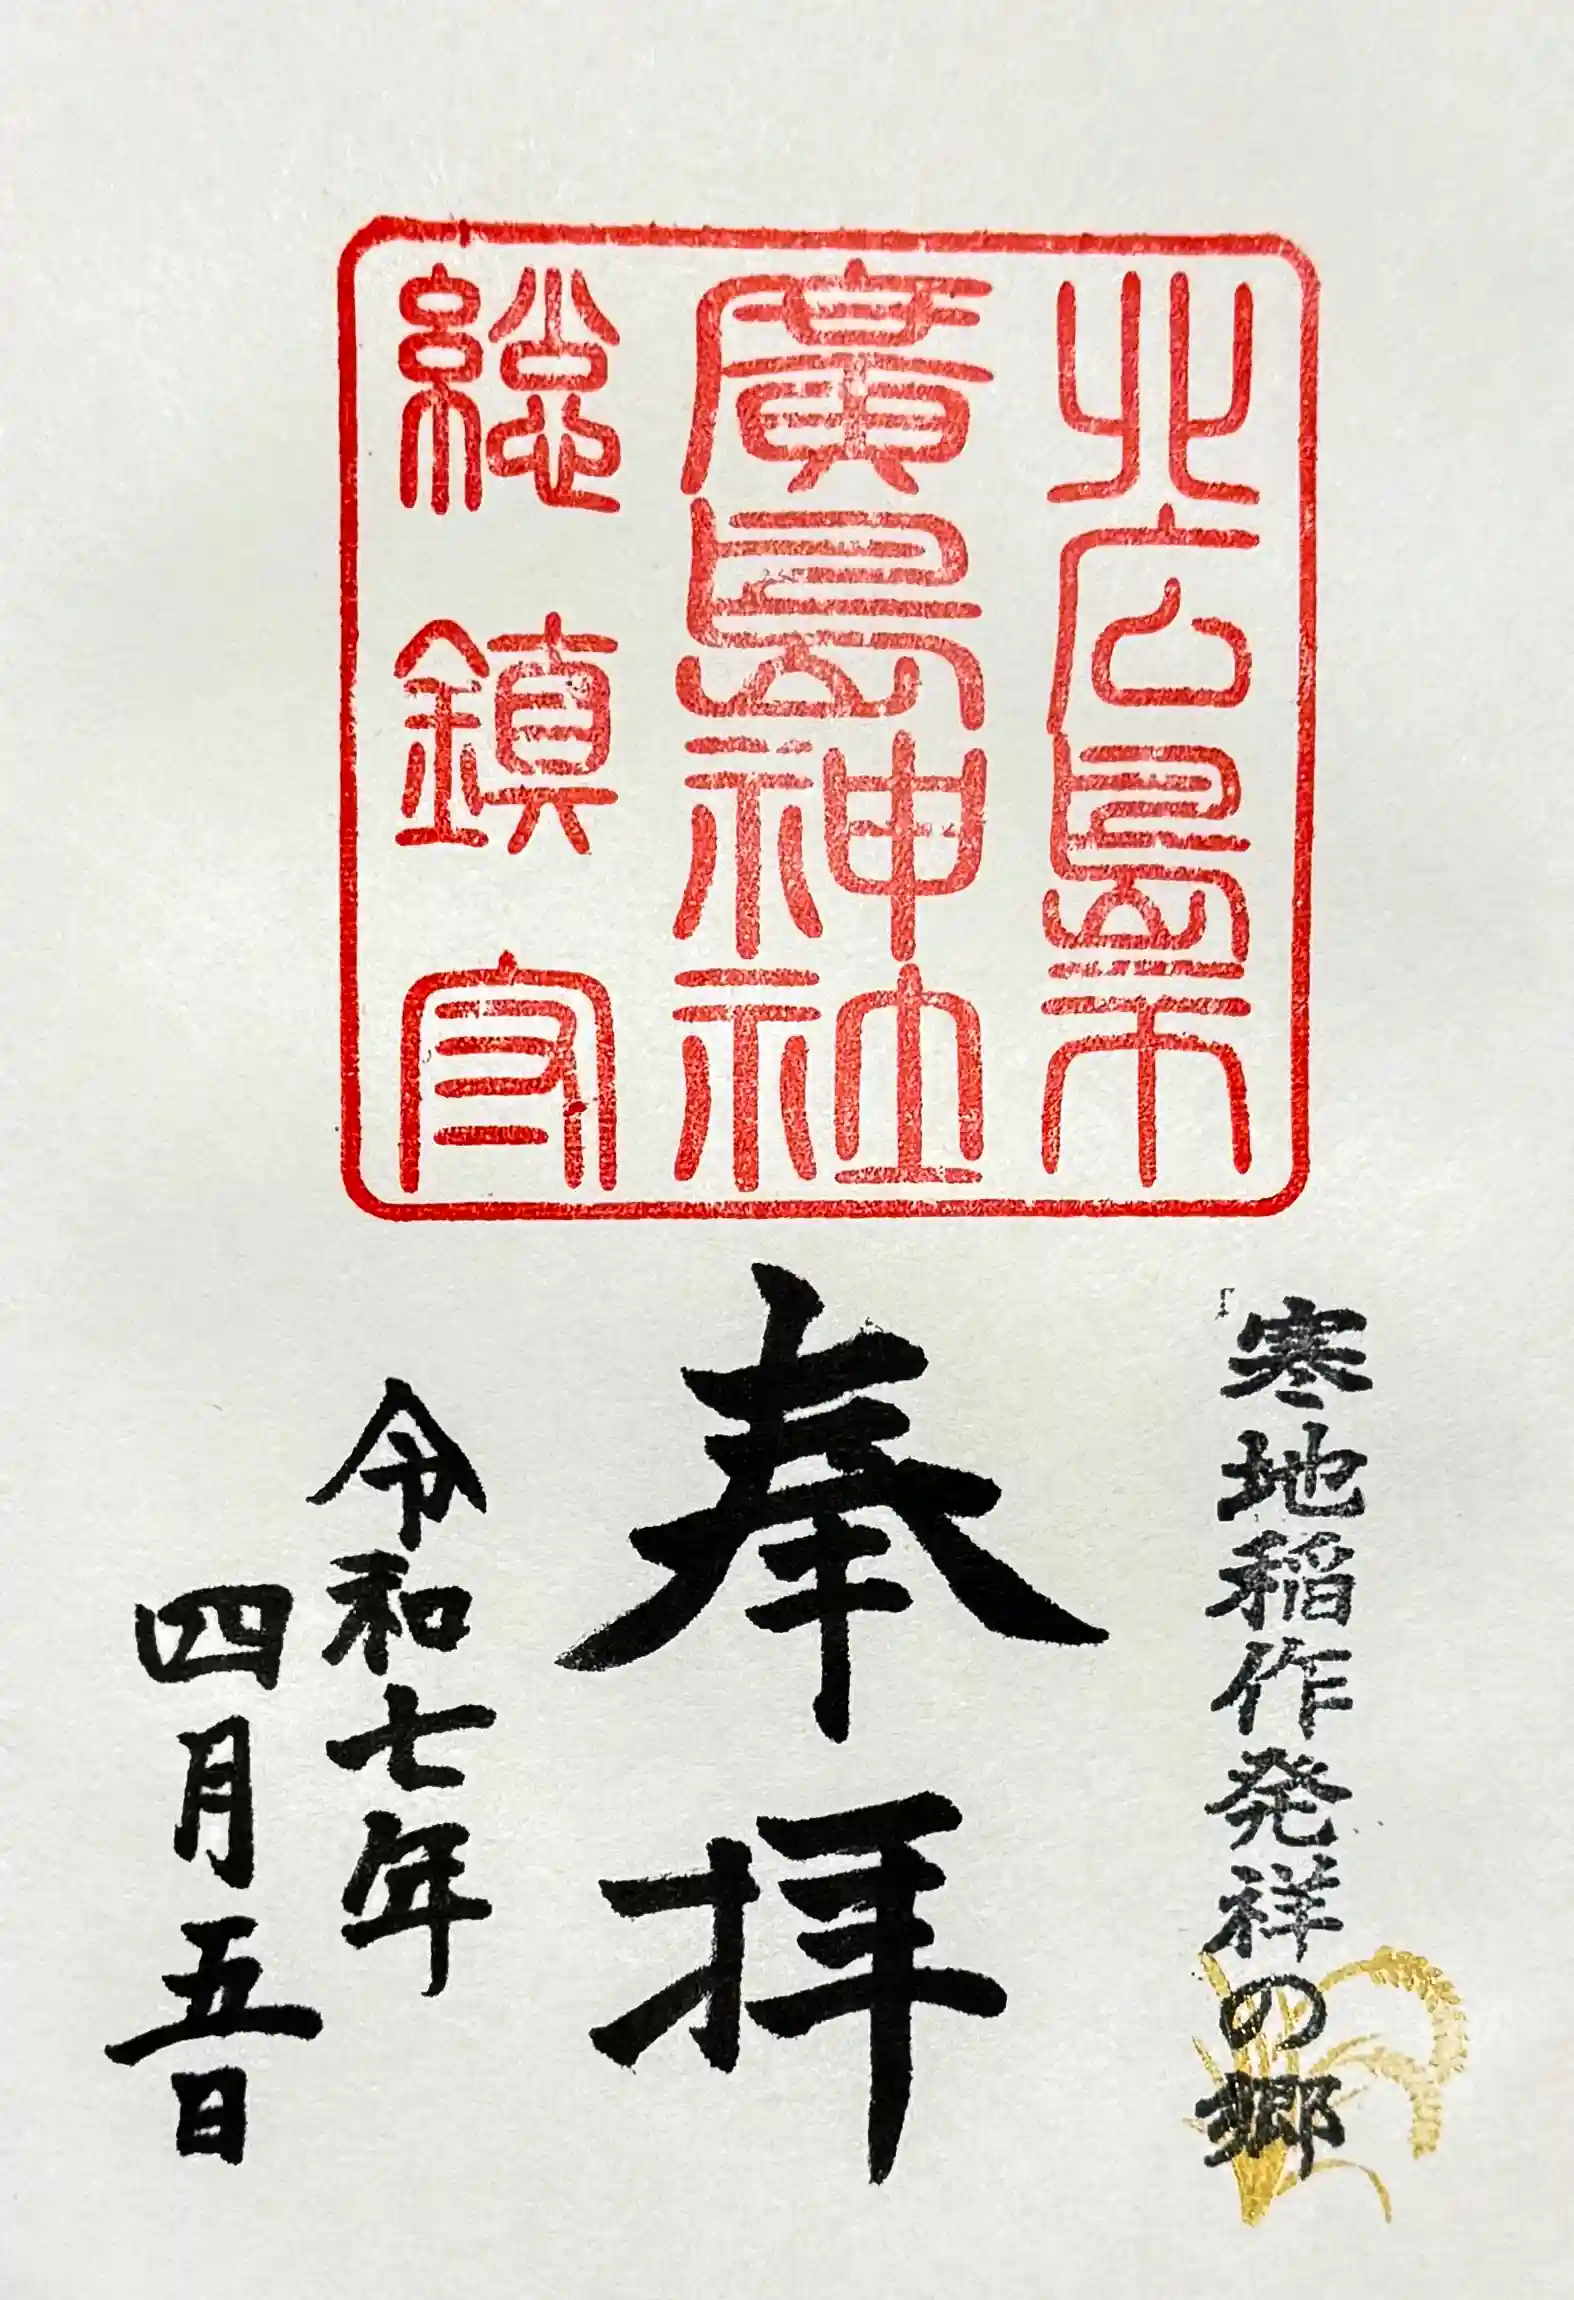 北広島市
廣島神社
総鎮守
寒地稲作発祥の郷
奉拝
令和七年
四月五日